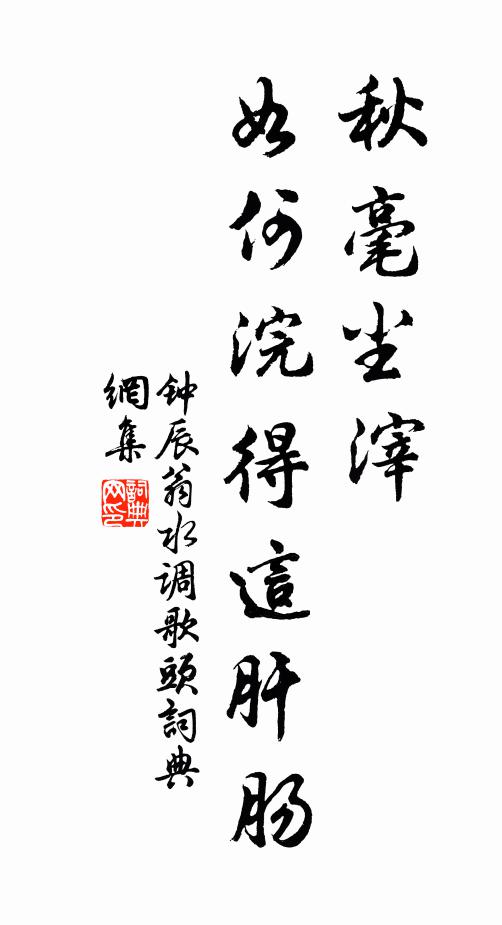 秋毫尘滓
如何浣得這肝肠
钟辰翁水调歌頭詞典
網集
詞典
网印